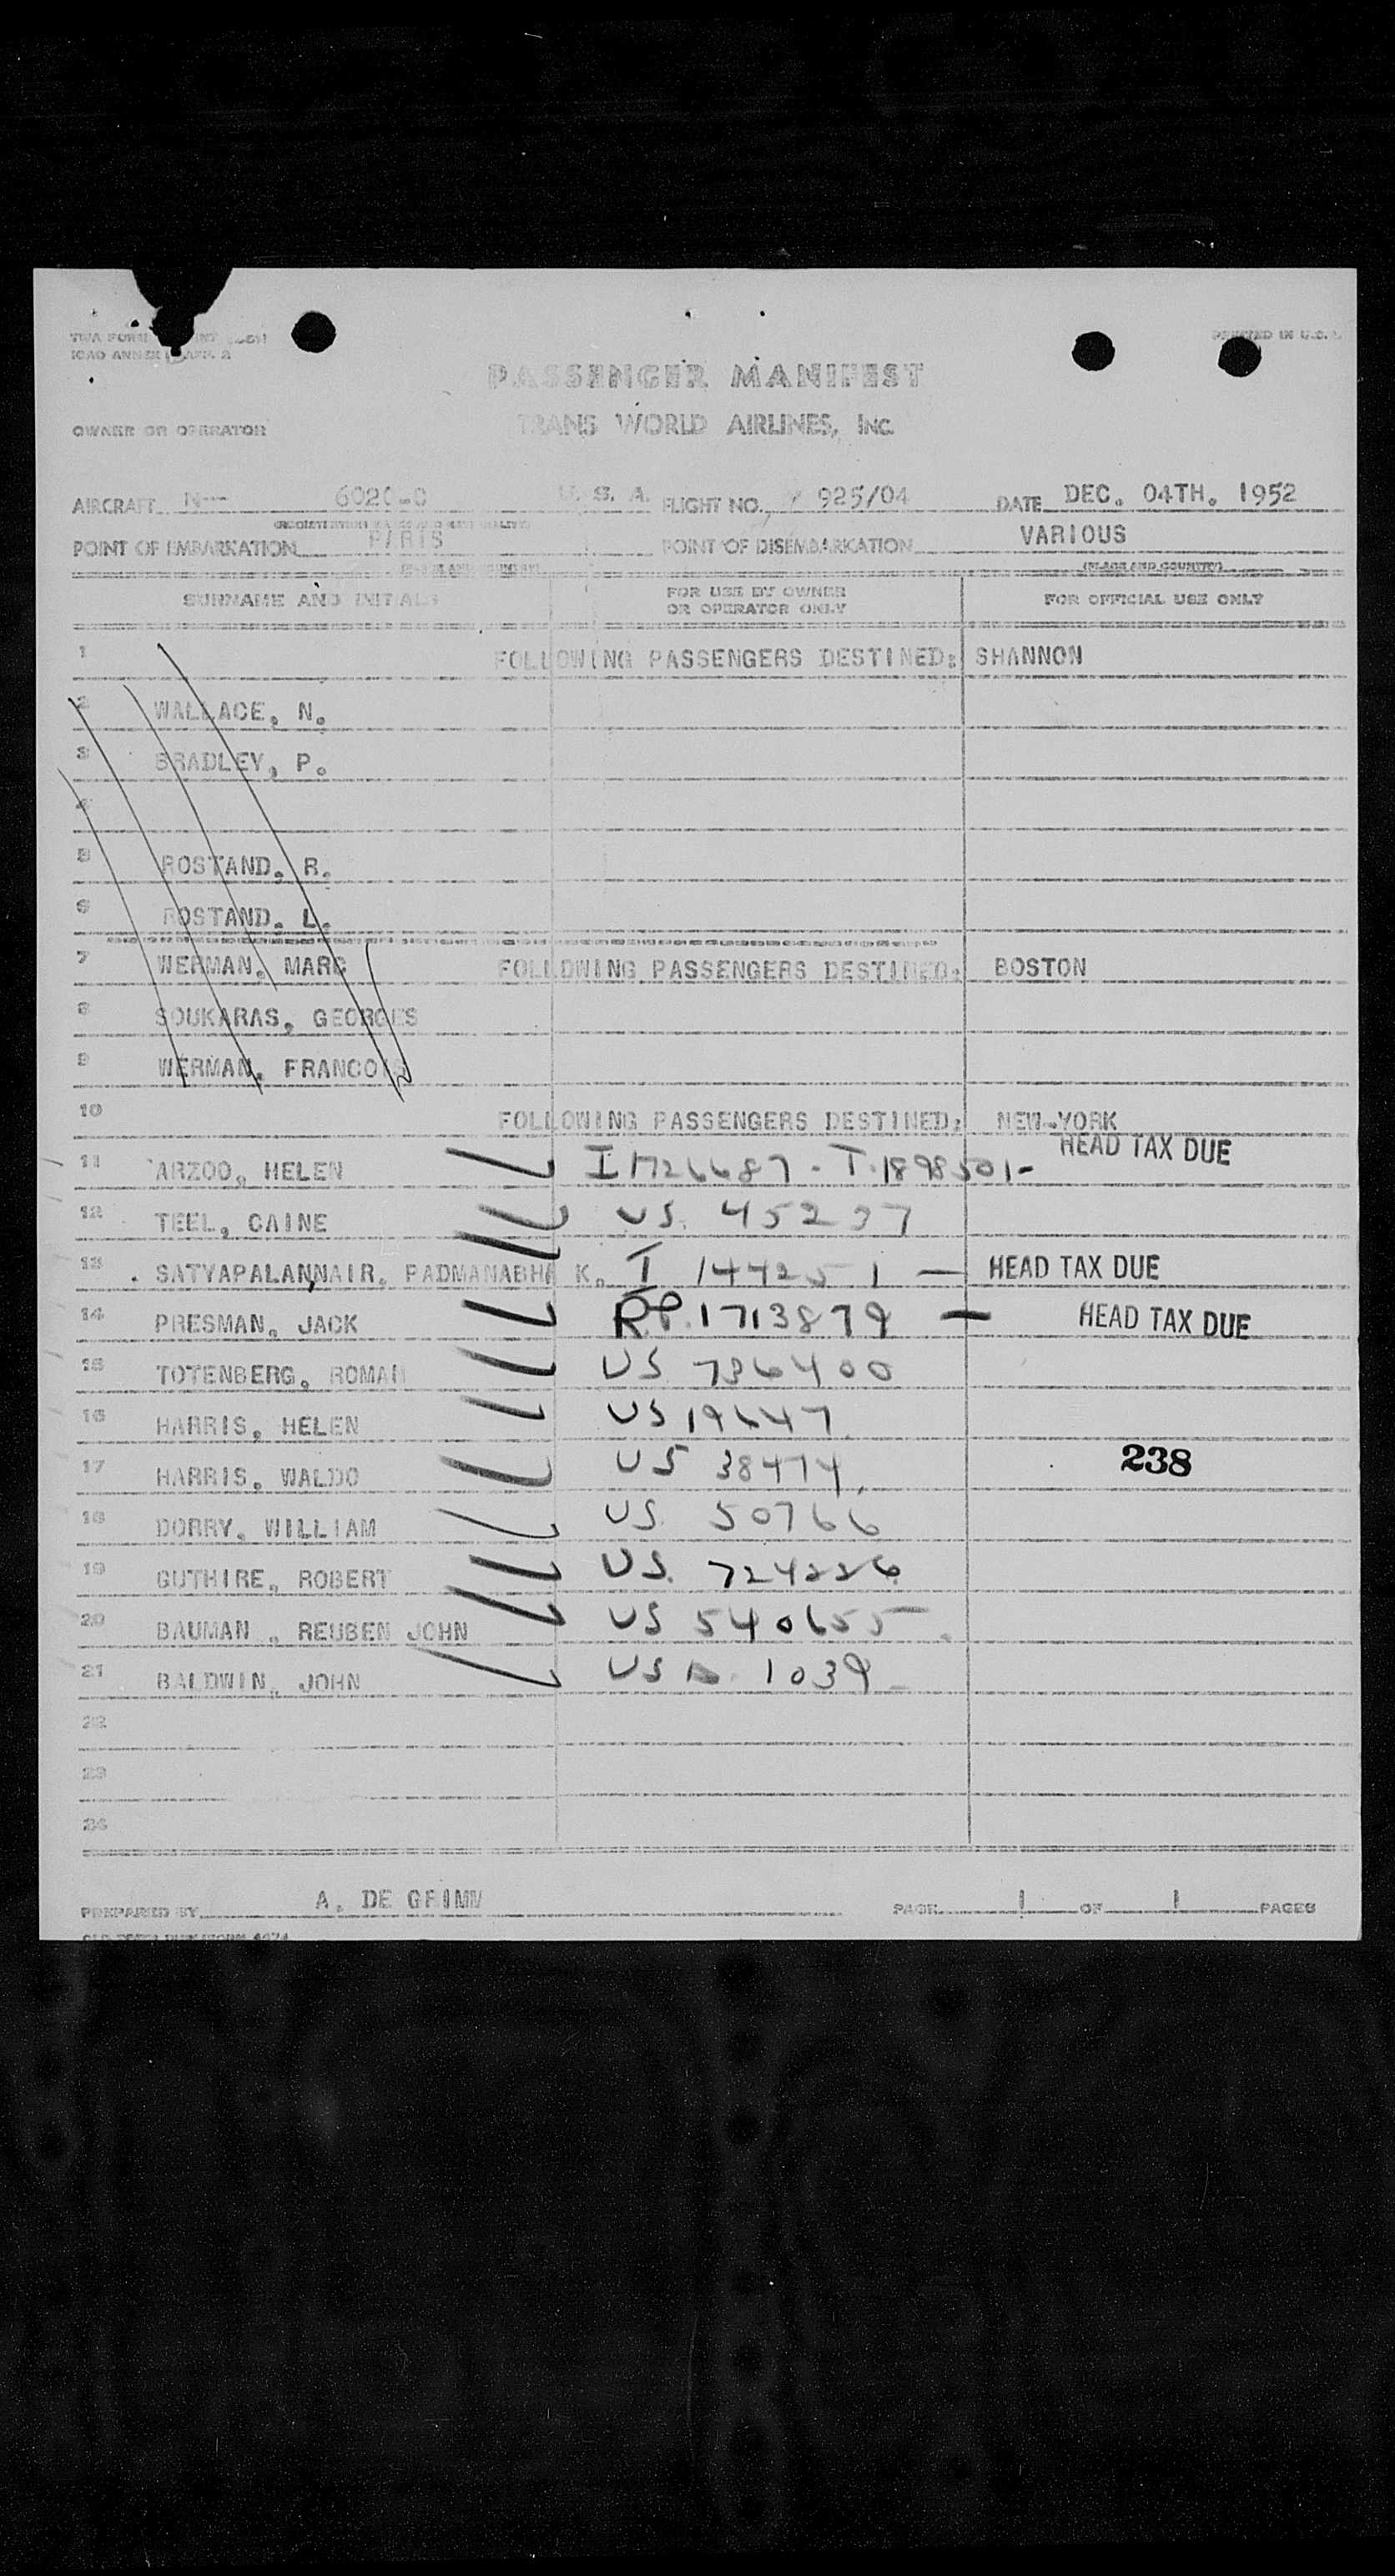 TWA FORM
ICAO ANNEX
PRINTED IN U.S.A.
PASSENGER MANIFEST
TRANS WORLD AIRLINES, INC.
OWNER OR OPERATOR
AIRCRAFT N-- U. S. A. FLIGHT NO. 925/04 DATE DEC. 04TH. 1952
POINT OF EMBARKATION PARIS POINT OF DISEMBARKATION VARIOUS
(PLACE AND COUNTRY)
SURNAME AND INITIALS FOR USE BY OWNER OR OPERATOR ONLY FOR OFFICIAL USE ONLY
1 FOLLOWING PASSENGERS DESTINED: SHANNON
2 WALLACE, N.
3 BRADLEY, P.
4
5 ROSTAND, R.
6 ROSTAND, L.
7 WERMAN, MARC FOLLOWING PASSENGERS DESTINED: BOSTON
8 SOUKARAS, GEORGES
9 WERMAN, FRANCOIS
10 FOLLOWING PASSENGERS DESTINED: NEW-YORK
HEAD TAX DUE
11 ARZOO, HELEN I 1726687 - T. 1898501-
12 TEEL, CAINE US. 45237
13 SATYAPALANNAIR, PADMANABHA K. I 144251 - HEAD TAX DUE
14 PRESMAN, JACK R.P. 1713879 - HEAD TAX DUE
15 TOTENBERG, ROMAN US 736400
16 HARRIS, HELEN US 19647
17 HARRIS, WALDO US 38474 238
18 DORRY, WILLIAM US. 50766
19 GUTHIRE, ROBERT US. 724226
20 BAUMAN , REUBEN JOHN US 540655
21 BALDWIN, JOHN US 1039
22
23
24
PREPARED BY A. DE GRIMM PAGE 1 OF 1 PAGES